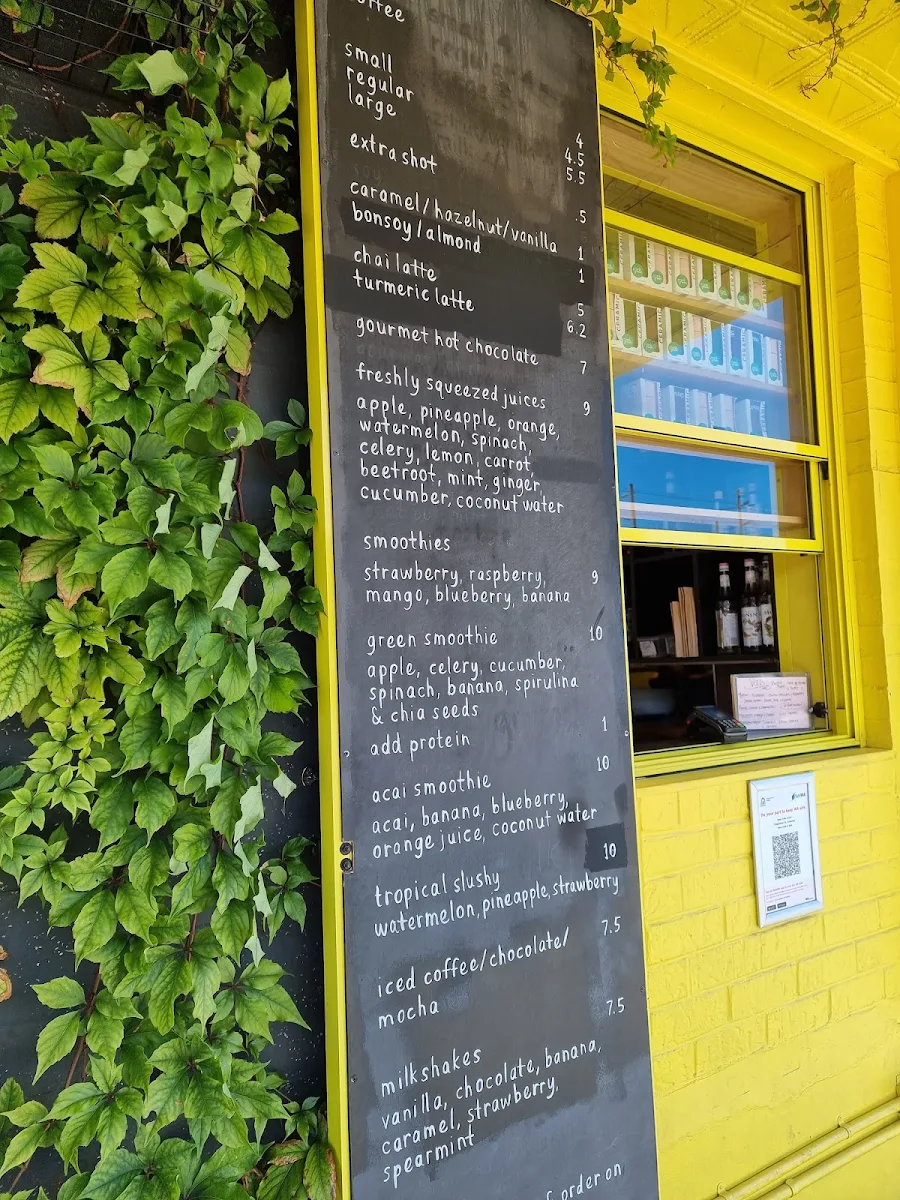 coffee
small 4
regular 4.5
large 5.5
extra shot .5
caramel/hazelnut/vanilla 1
bonsoy/almond 1
chai latte 5
turmeric latte 6.2
gourmet hot chocolate 7
freshly squeezed juices 9
apple, pineapple, orange,
watermelon, spinach,
celery, lemon, carrot,
beetroot, mint, ginger,
cucumber, coconut water
smoothies
strawberry, raspberry, 9
mango, blueberry, banana
green smoothie 10
apple, celery, cucumber,
spinach, banana, spirulina
& chia seeds
add protein 1
acai smoothie 10
acai, banana, blueberry,
orange juice, coconut water
tropical slushy 10
watermelon, pineapple, strawberry
iced coffee/chocolate/ 7.5
mocha
milkshakes 7.5
vanilla, chocolate, banana,
caramel, strawberry,
spearmint
order on